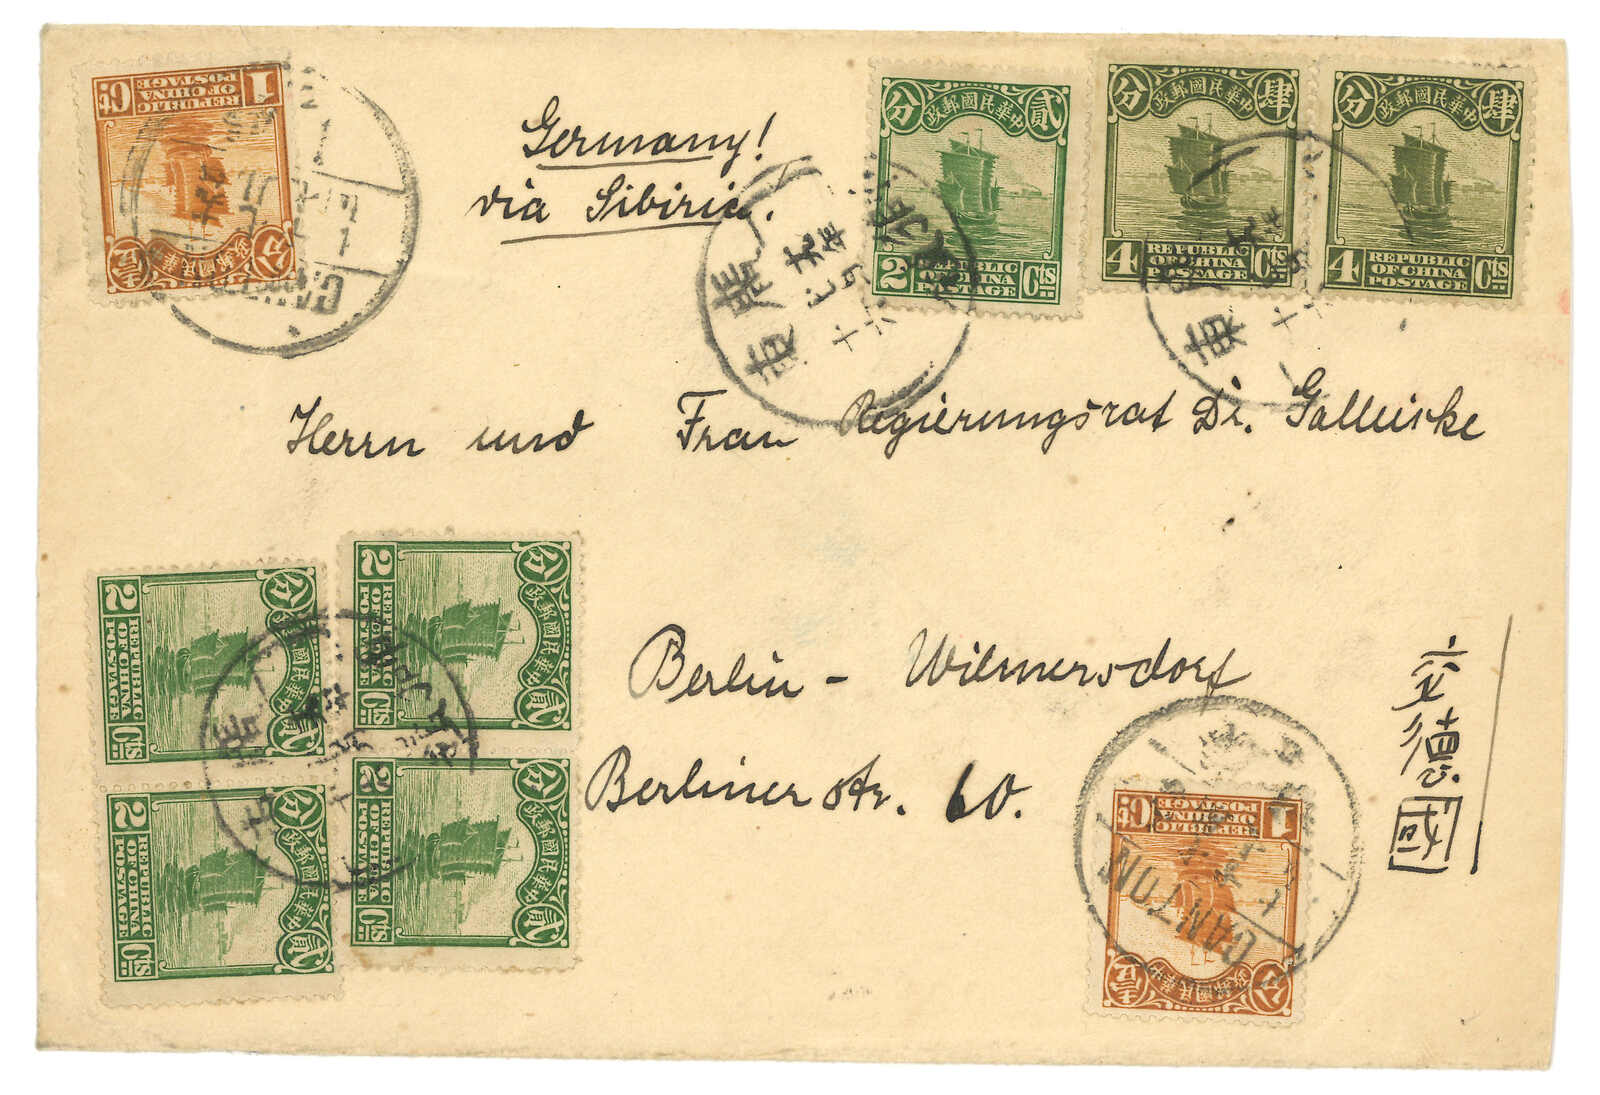 Germany!
via Sibiria.
Herrn und Frau Regierungsrat Dr. Galleiske
Berlin - Wilmersdorf
Berliner Str. 60.
交德国
1 ¢
REPUBLIC
OF CHINA
POSTAGE
中華民國郵政
壹 分
貳 分
中華民國郵政
2 Cts
REPUBLIC
OF CHINA
POSTAGE
肆 分
中華民國郵政
4 Cts
REPUBLIC
OF CHINA
POSTAGE
肆 分
中華民國郵政
4 Cts
REPUBLIC
OF CHINA
POSTAGE
貳 分
中華民國郵政
2 Cts
REPUBLIC
OF CHINA
POSTAGE
貳 分
中華民國郵政
2 Cts
REPUBLIC
OF CHINA
POSTAGE
貳 分
中華民國郵政
2 Cts
REPUBLIC
OF CHINA
POSTAGE
貳 分
中華民國郵政
2 Cts
REPUBLIC
OF CHINA
POSTAGE
1 ¢
REPUBLIC
OF CHINA
POSTAGE
中華民國郵政
壹 分
CANTON